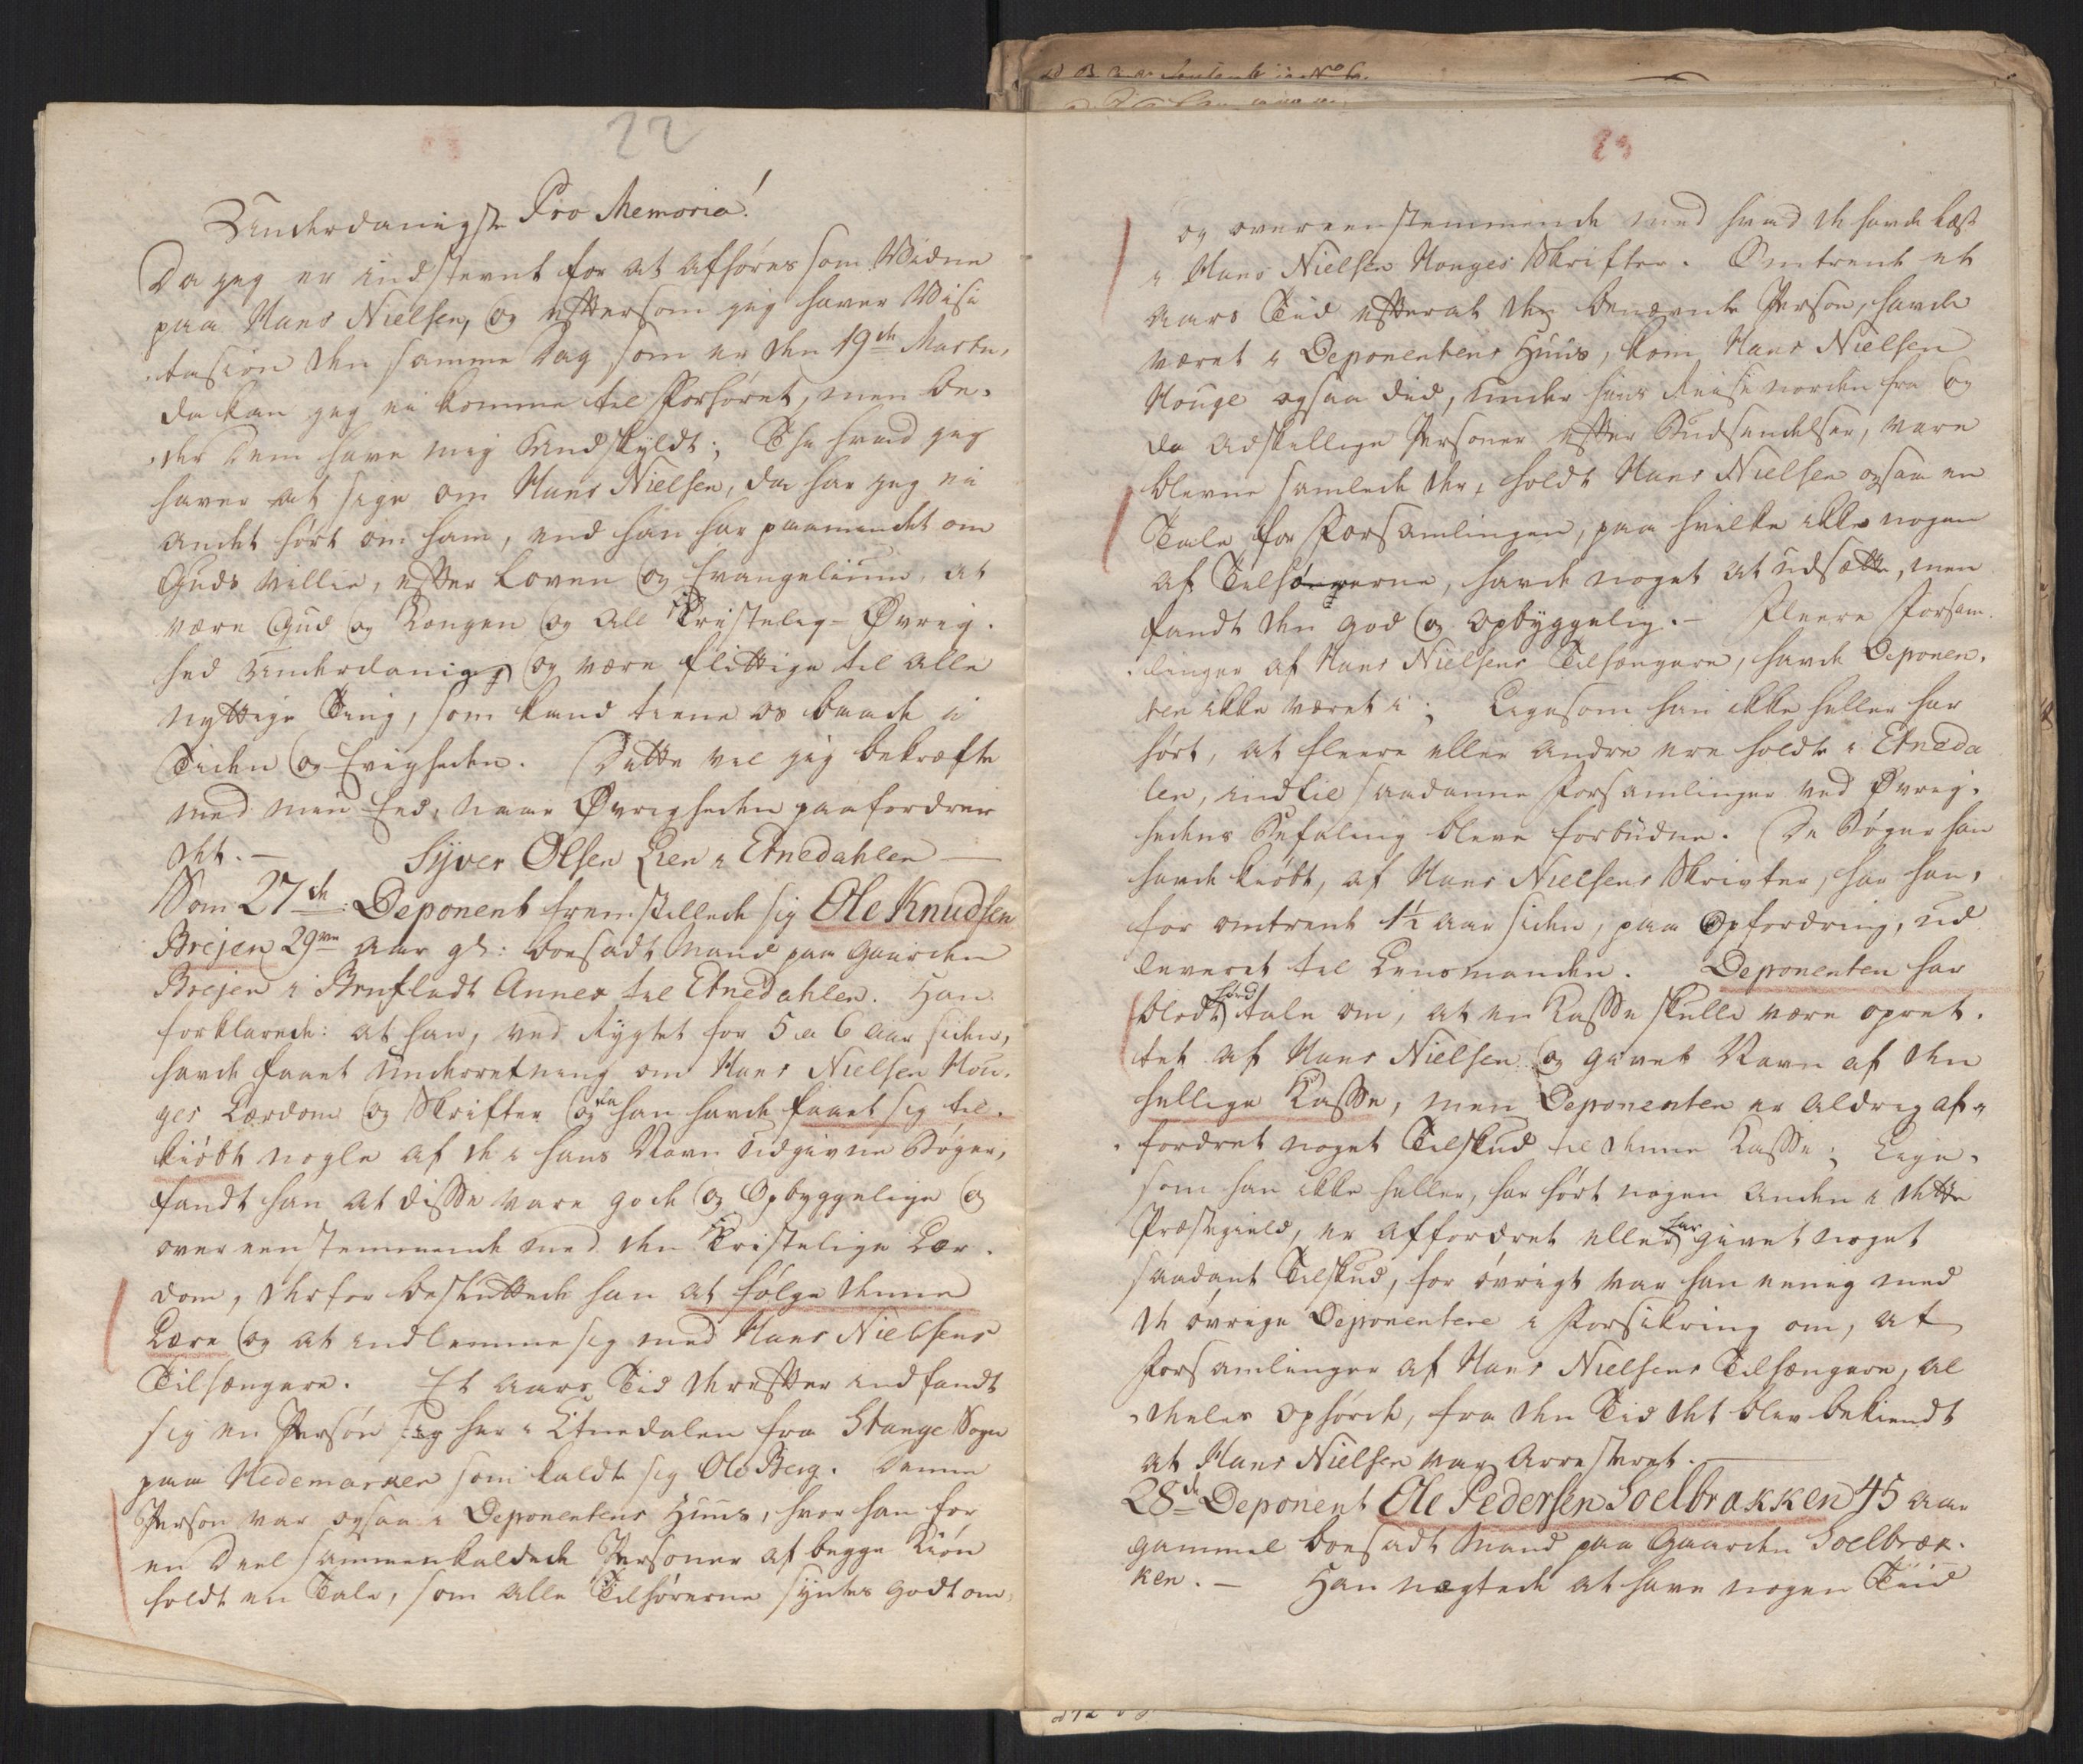 22
Underdanigste Pro Memoria!
Da jeg er indstevnt for at afhøres som Vidne
paa Hans Nielsen, og eftersom jeg haver Visi
tasion den samme Dag som er den 19de Martii,
da kan jeg ei komme til Forhøret, men be-
der dem have mig Undskyldt; Thi hvad jeg
haver at sige om Hans Nielsen, da har jeg ei
andet hørt om ham, end han har paamindet om
Guds villie, efter Loven og Evangelium, at
være Gud og Kongen og all Kristelig Øvrig-
hed underdanig, og være flittige til alle
nyttige Ting, som kand tiene os baade i
Tiden og Evigheden. Dette vil jeg bekræfte
med min Eed, naar Øvrigheden paafordrer
det. — Syver Olsen Lien i Etnedahlen —
Som 27de Deponent fremstillede sig Ole Knudsen
Brejen 29ve aar gl: boesadt Mand paa Gaarden
Brejen i Brufladt Annex til Etnedahlen. Han
forklarede: at han, ved Rygtet for 5 a 6 aar siden,
havde faaet underretning om Hans Nielsen Hou-
ges Lærdom og Skrifter og da han havde faaet sig til-
kiøbt nogle af de i hans Navn udgivne Bøger,
fandt han at disse vare gode og Opbyggelige og
overeenstemmende med den Kristelige Lær-
dom, derfor besluttede han at følge denne
Lære og at indlemme sig med Hans Nielsens
Tilhængere. Et aars Tid derefter indfandt
sig en Persøn sig her i Etnedalen fra Stange Sogn
paa Hedemarken som kaldte sig Ole Berg. Denne
Person var ogsaa i Deponentens Huus, hvor han for
en Deel sammenkaldede Personer af begge Kiøn
holdt en Tale, som alle Tilhørerne syntes godt om,
23
og overeenstemmende med hvad de havde læst
i Hans Nielsen Houges Skrifter. Omtrent et
aars Tiid efterat den benævnte Person, havde
været i Deponentens Huus, kom Hans Nielsen
Houge ogsaa did, under hans Reise norden fra og
da adskillige Personer efter Budsendelser, vare
blevne samlede der, holdt Hans Nielsen ogsaa en
Tale for Forsamlingen, paa hvilke ikke nogen
af Tilhørerne, havde noget at udsætte, men
fandt den god og opbyggelig. — Fleere Forsam-
linger af Hans Nielsens Tilhængere, havde Deponen-
ten ikke været i; Ligesom han ikke heller har
hørt, at fleere eller andre ere holdte i Etneda
len, indtil saadanne Forsamlinger ved Øvrig-
hedens Befaling bleve forbudne. De Bøger han
havde kiøbt, af Hans Nielsens Skrivter, har han,
for omtrent 1½ aar siden, paa Opfordring, ud
leveret til Lensmanden. Deponenten har
blodt hørt tale om, at en Kasse skulle være opret-
tet af Hans Nielsen og givet Navn af den
hellige Kasse, men Deponenten er aldrig af-
fordret noget Tilskud til denne Kasse; Lige-
som han ikke heller, har hørt nogen anden i dette
Præstegield, er affordret eller har givet noget
saadant Tilskud, for øvrigt var han eenig med
de øvrige Deponentere i Forsikring om, at
Forsamlinger af Hans Nielsens Tilhængere, al
deles ophørde, fra den Tid det blev bekiendt
at Hans Nielsen var Arresteret. —
28de Deponent Ole Pedersen Soelbrakken 45 aar
gammel boesadt Mand paa Gaarden Soelbræk-
ken. — Han nægtede at have nogen Tiid